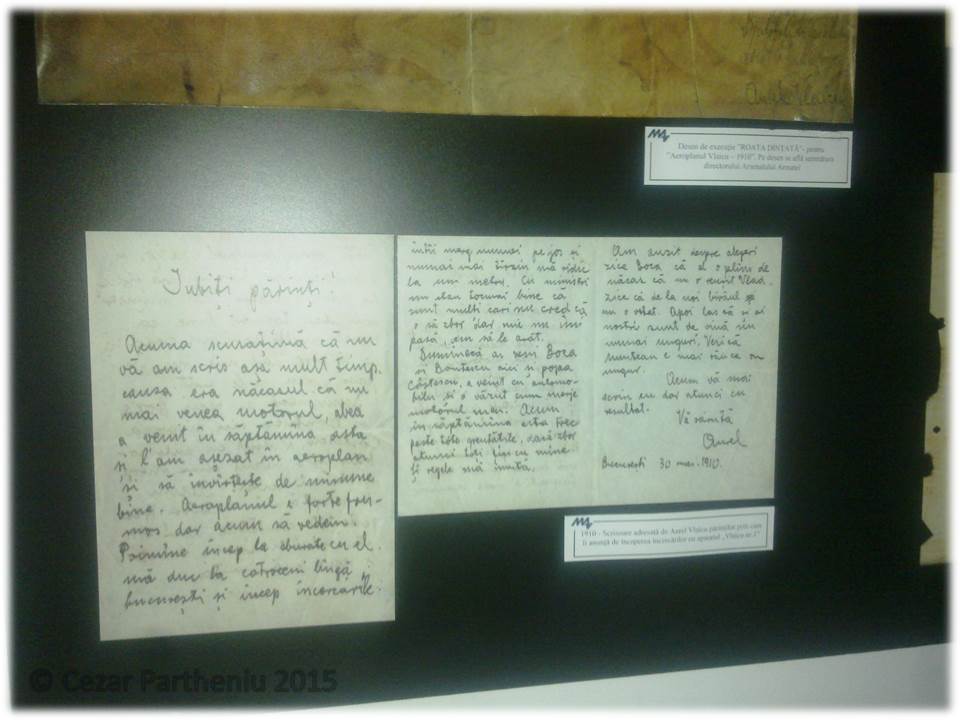 Aurel Vlaicu
Desen de execuție "ROATA DINȚATĂ"- pentru
"Aeroplanul Vlaicu – 1910". Pe desen se află semnătura
directorului Arsenalului Armatei
Iubiți părinți!
Acuma scurățînă că nu
vă am scris așa mult timp.
causa era năcazul că nu
mai venea motorul, abea
a venit în săptămîna asta
și l'am așezat în aeroplan
și să învîrtește de minune
bine. Aeroplanul e forte fru-
mos dar acum să vedem.
Poimîne încep la sburate cu el.
mă duc la cotroceni lîngă
bucurești și încep încercările.
întîi merg numai pe jos și
numai mai tîrziu mă ridic
la un metru. Cu miniștri
nu stau tocmai bine că
sunt mulți cari nu cred că
o să zbor dar mie nu îmi
pasă, am să le arăt.
Duminecă au Boca
și aici și popea
a venit cu automo-
bilu și o văzut cum merje
motorul meu. Acum
în săptămîna asta trec
peste tote greutățile, dacă zbor
atunci toți cu mine
și regele mă invită.
Am auzit despre alegeri
zice Boca că el o plîns de
năcaz că nu o reușit Vlad.
zice că de la noi birăul
nu o votat. Apoi las că și ai
nostri sunt de vină nu
numai unguri.
Muntean e mai rău ca un
ungur.
Acum vă mai
scriu eu dar atunci cu
resultat.
Vă sărută
Aurel
Bucuresti 30 mai. 1910.
1910 – Scrisoare adresată de Aurel Vlaicu părinților prin care
îi anunță de începerea încercărilor cu aparatul „Vlaicu nr.1"
© Cezar Partheniu 2015